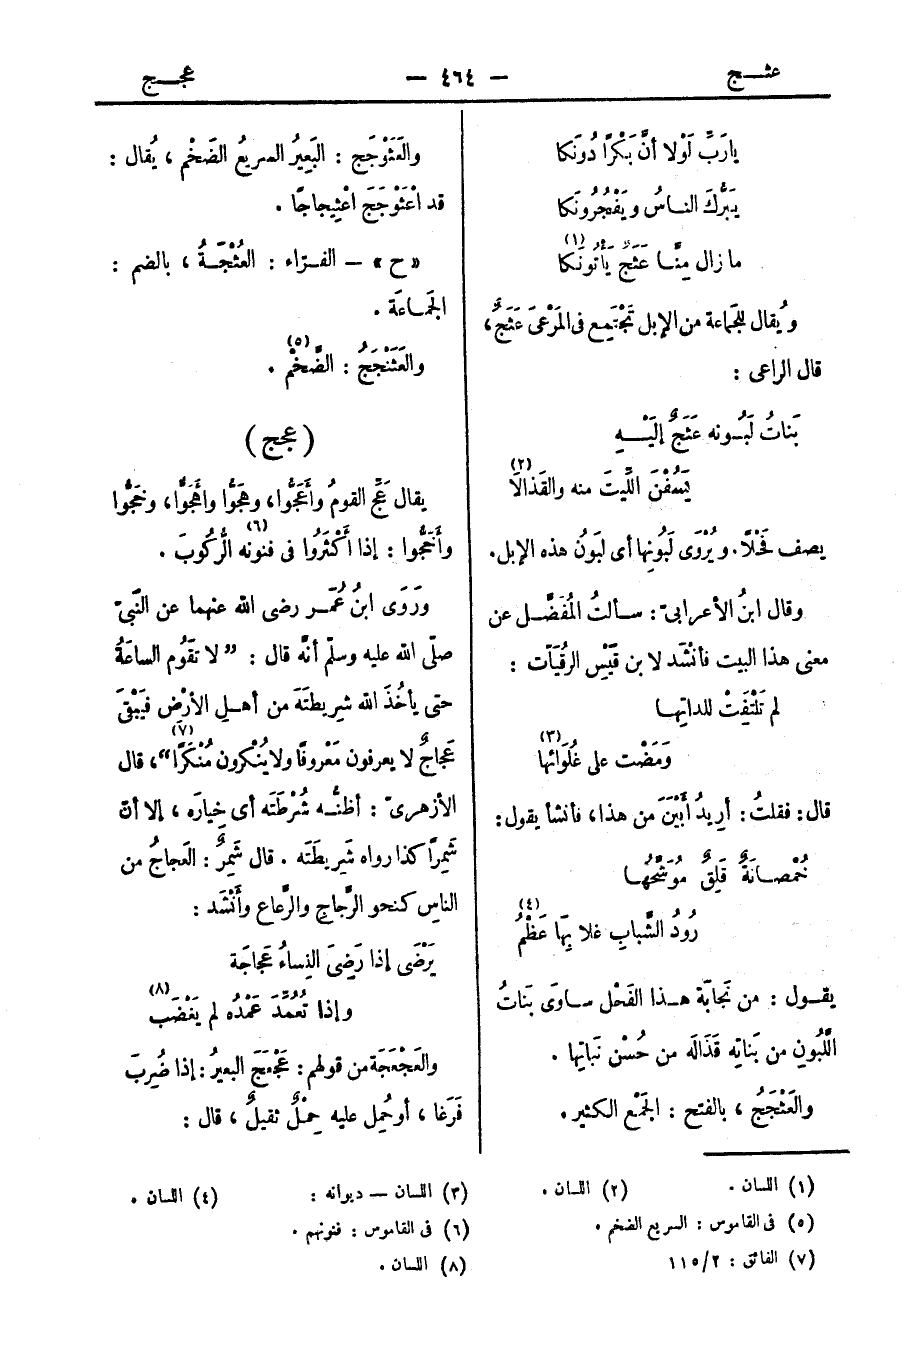 عثـــج
— ٤٦٤ —
عجـــج
يارَبِّ لَوْلا أنَّ بَكْرًا دُونَكا
يَبَرُّكَ النـاسُ ويَفْجُرُونَكا
ما زال مِنَّـا عَثَجٌ يَأْتُونَكا (١)
ويُقال للجَماعة من الإبل تَجْتَمِع فى المَرْعى عَثَجٌ،
قال الراعى :
بَناتُ لَبُـونه عَثَجٌ إلَيْــهِ
يَسُفْنَ اللِّيتَ منه والقَذالَا (٢)
يصف فَحْلًا. ويُرْوَى لَبُونِها أى لَبَونُ هذه الإبل.
وقال ابنُ الأعرابىّ: سـألتُ المُفَضَّـل عن
معنى هذا البيت فأَنْشَد لابن قَيْسِ الرُقَيَّات :
لم تَلْتَفِتْ للداتِهـا
ومَضَت على غُلَوَائها (٣)
قال: فقلتُ: أريدُ أَبْيَنَ من هذا، فأنشأ يقول:
خُمْصـانَةٌ قَلِقٌ مُوَشَّحُهـا
رُودُ الشَّبابِ غلا بِهَا عَظْمُ (٤)
يقـول : من نَجابَة هـذا الفَحْل سـاوَى بَناتُ
اللَّبُونِ من بَناتِه قَذَالَه من حُسْن نَباتِها .
والعَثْجَجُ ، بالفتح : الجَمْع الكثير .
والعَثَوْجَج : البَعِيرُ السريعُ الضَخْم ، يُقال :
قد اعْثَوْجَجَ اعْثِيجاجًا .
«ح» — الفـرّاء : العُثْجَـةُ ، بالضم :
الجَمـاعَة .
والعَثَنْجَجُ : الضَّخْمُ (٥) .
( عجج )
يقال عَجَّ القومُ وأَعَجُّوا، وهَجُّوا وأَهَجُّوا، وخَجُّوا
وأَخَجُّوا : إذا أَكْثَرُوا فى فنونه (٦) الرُّكُوبَ .
ورَوَى ابنُ عُمَـر رضى الله عنهما عن النَّبىّ
صلّى الله عليه وسلّم أنَّه قال : ” لا تقَوُم الساعَةُ
حتى يأخُذَ الله شرِيطتَهَ من أهـلِ الأرْض فيَبْقَى
عَجاجٌ لا يعرفون مَعْروفًا ولا يُنْكِرون مُنْكَرًا (٧) “، قال
الأزهرىّ : أظنُّـه شُرْطَتَه أى خِيارَه ، إلا أنّ
شَمِرًا كذا رواه شَرِيطَتَه . قال شَمِرٌ : العَجاجُ من
الناسِ كنحو الرَّجاجِ والرَّعاع وأَنْشَد :
يَرْضَى إذا رَضِىَ النِساءُ عَجاجَة
وإذا تُعُمِّدَ عَمْدُه لم يَغْضَبِ (٨)
والعَجْعَجَة من قولهم: عَجْعَجَ البعيرُ: إذا ضُرِبَ
فَرَغا ، أو حُمِل عليه حِمْلٌ ثقيلٌ ، قال :
(١) اللسان .
(٢) اللسان .
(٣) اللسان — ديوانه :
(٤) اللسان .
(٥) فى القاموس : السريع الضخم .
(٦) فى القاموس : فنونهم .
(٧) الفائق : ٢/١١٥
(٨) اللسان .